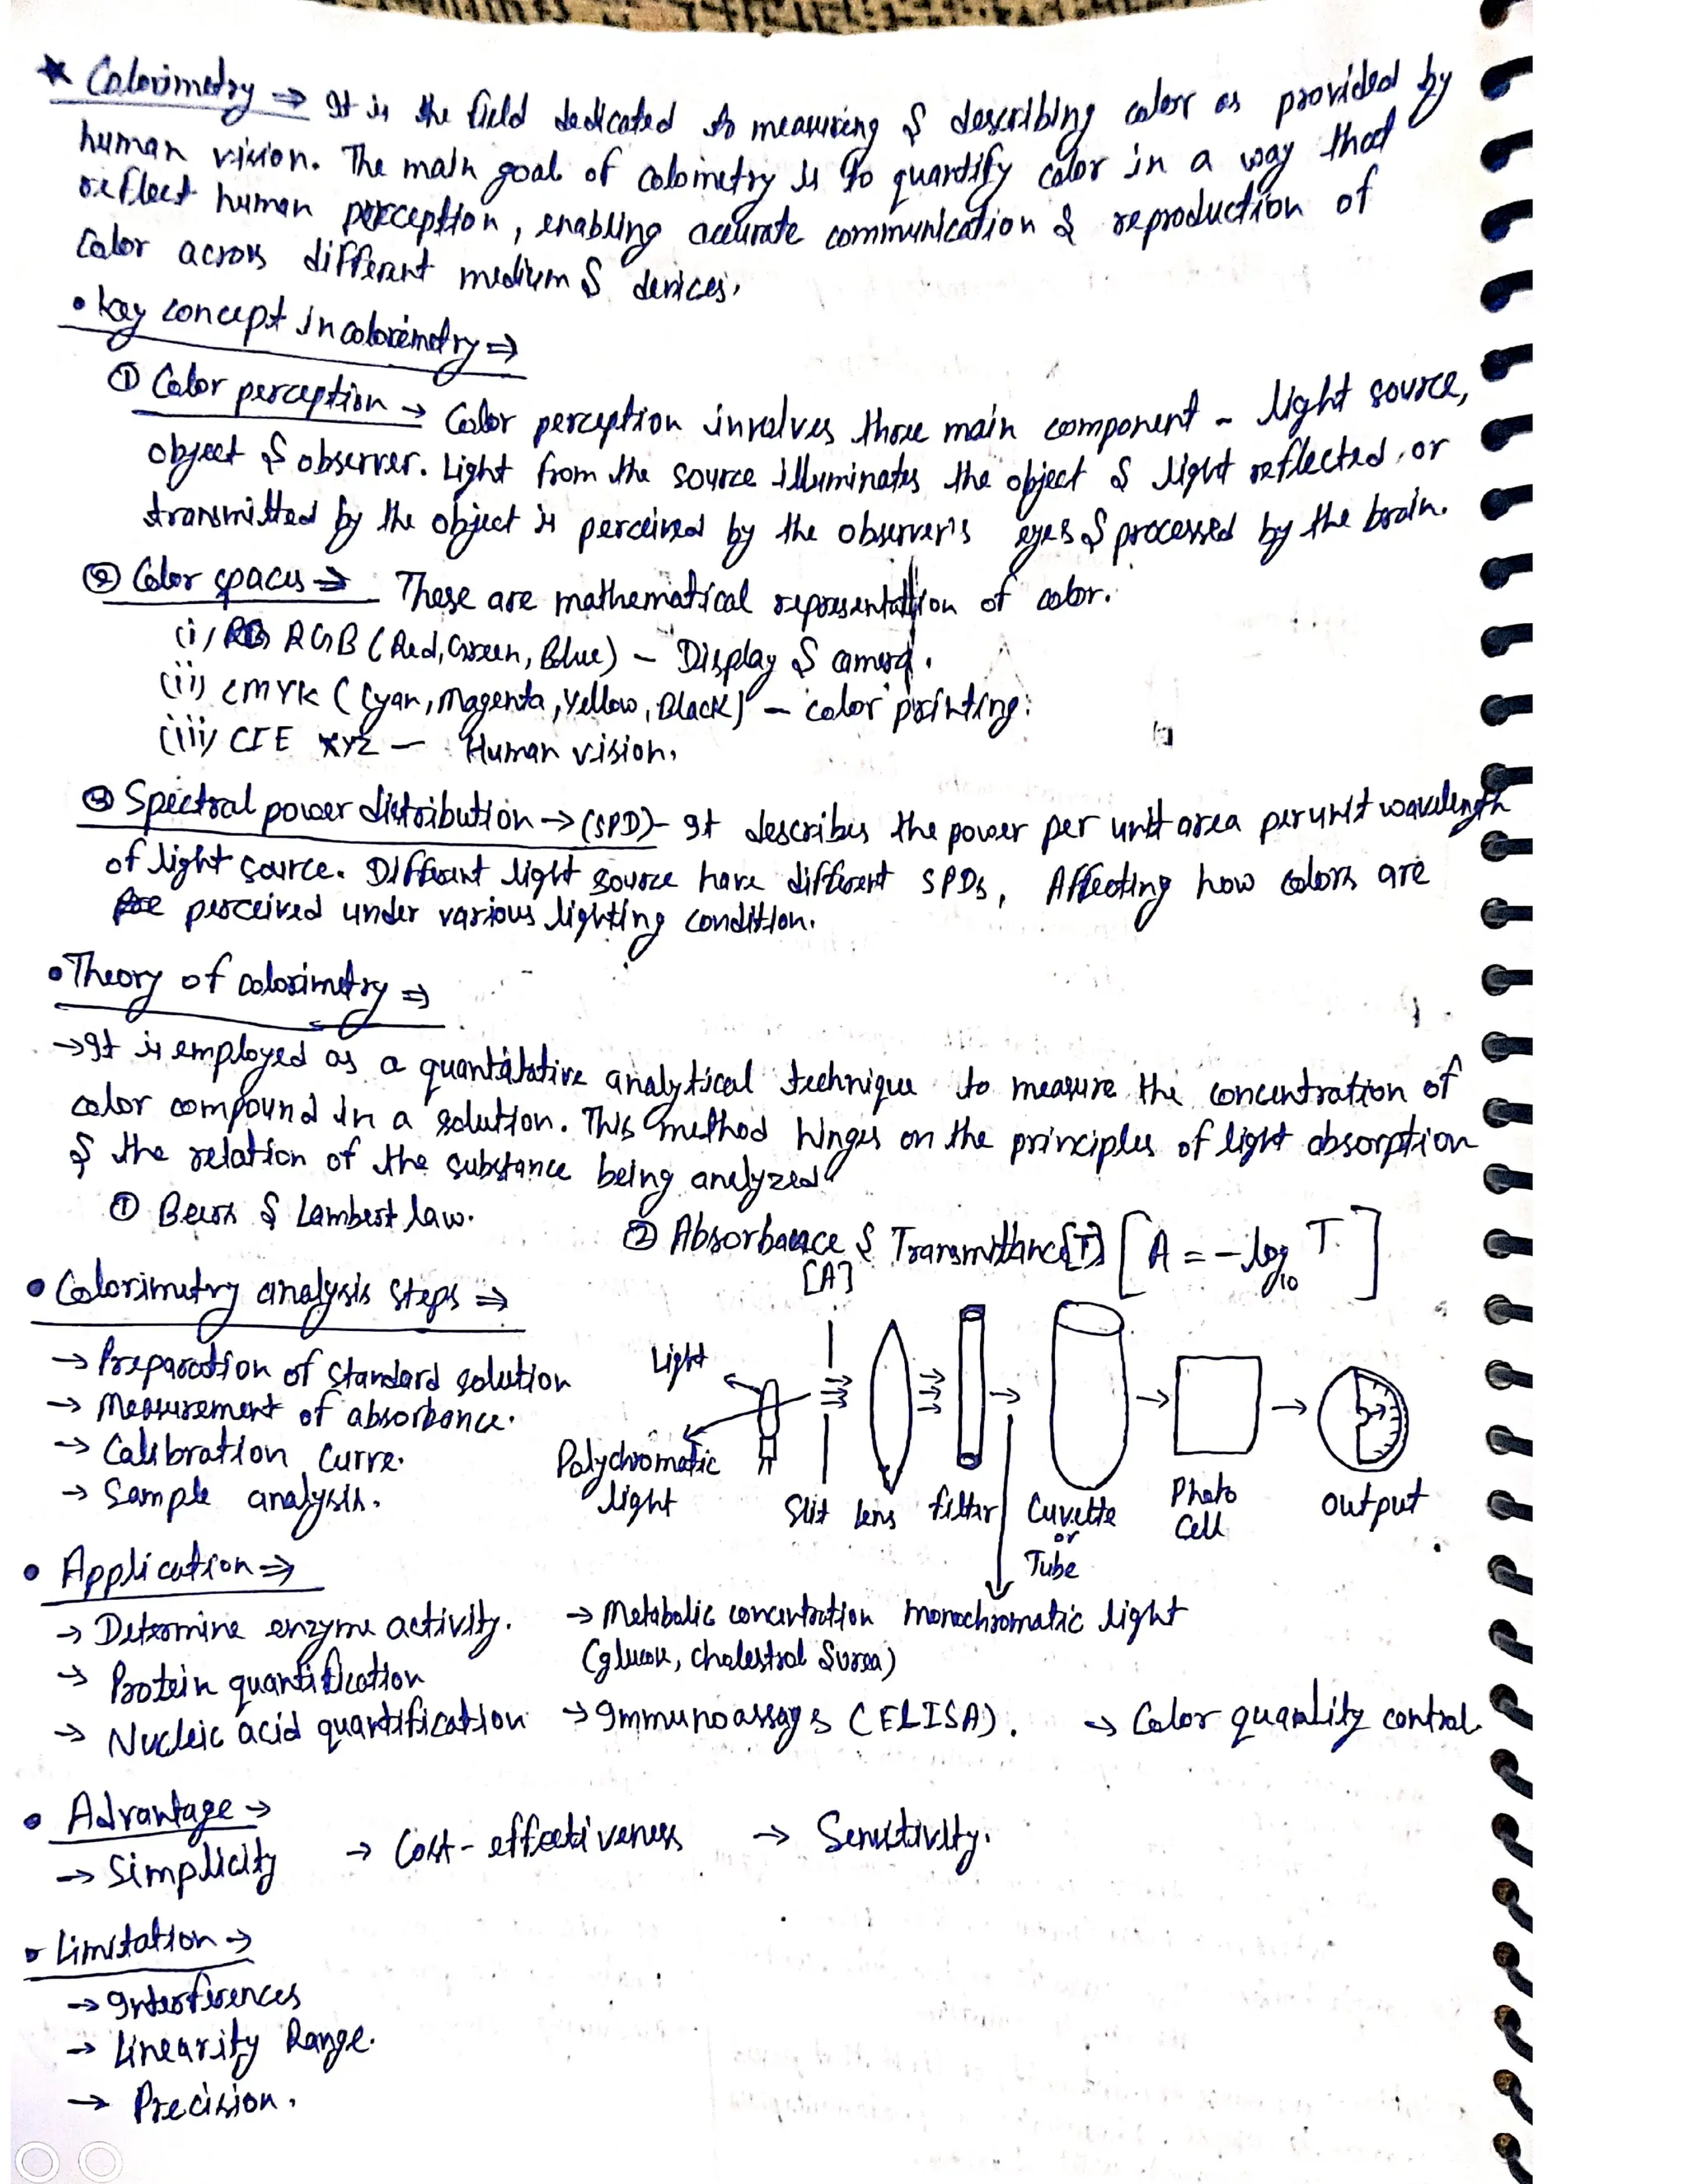 ★ Colorimetry ⇒ It is the field dedicated to measuring & describing color as provided by
human vision. The main goal of colometry is to quantify color in a way that
reflect human perception, enabling accurate communication & reproduction of
color across different medium & devices.
• Key concept in colorimetry ⇒
① Color perception → Color perception involves three main component - light source,
object & observer. Light from the source illuminates the object & light reflected or
transmitted by the object is perceived by the observer's eyes & processed by the brain.
② Color spaces ⇒ These are mathematical representation of color.
(i) RGB (Red, Green, Blue) - Display & camera.
(ii) CMYK (Cyan, Magenta, Yellow, Black) - color printing.
(iii) CIE XYZ - Human vision.
③ Spectral power distribution → (SPD) - It describes the power per unit area per unit wavelength
of light source. Different light source have different SPDs, Affecting how colors are
perceived under various lighting condition.
• Theory of colorimetry ⇒
→ It is employed as a quantitative analytical technique to measure the concentration of
color compound in a solution. This method hinges on the principles of light absorption
& the relation of the substance being analyzed
① Beers & Lambert law.
② Absorbance & Transmittance [T] [A = -log₁₀ T]
[A]
• Colorimetry analysis steps ⇒
→ Preparation of standard solution
→ Measurement of absorbance.
→ Calibration curve.
→ Sample analysis.
Light
Polychromatic
light
Slit lens filter Cuvette
or
Tube
Photo
Cell
output
monochromatic light
• Application ⇒
→ Determine enzyme activity. → Metabolic concentration
(glucose, cholestrol & urea)
→ Protein quantification
→ Nucleic acid quantification → Immunoassays (ELISA). → Color quality control.
• Advantage →
→ Simplicity → Cost-effectiveness → Sensitivity.
• Limitation →
→ Interferences
→ Linearity Range.
→ Precision.